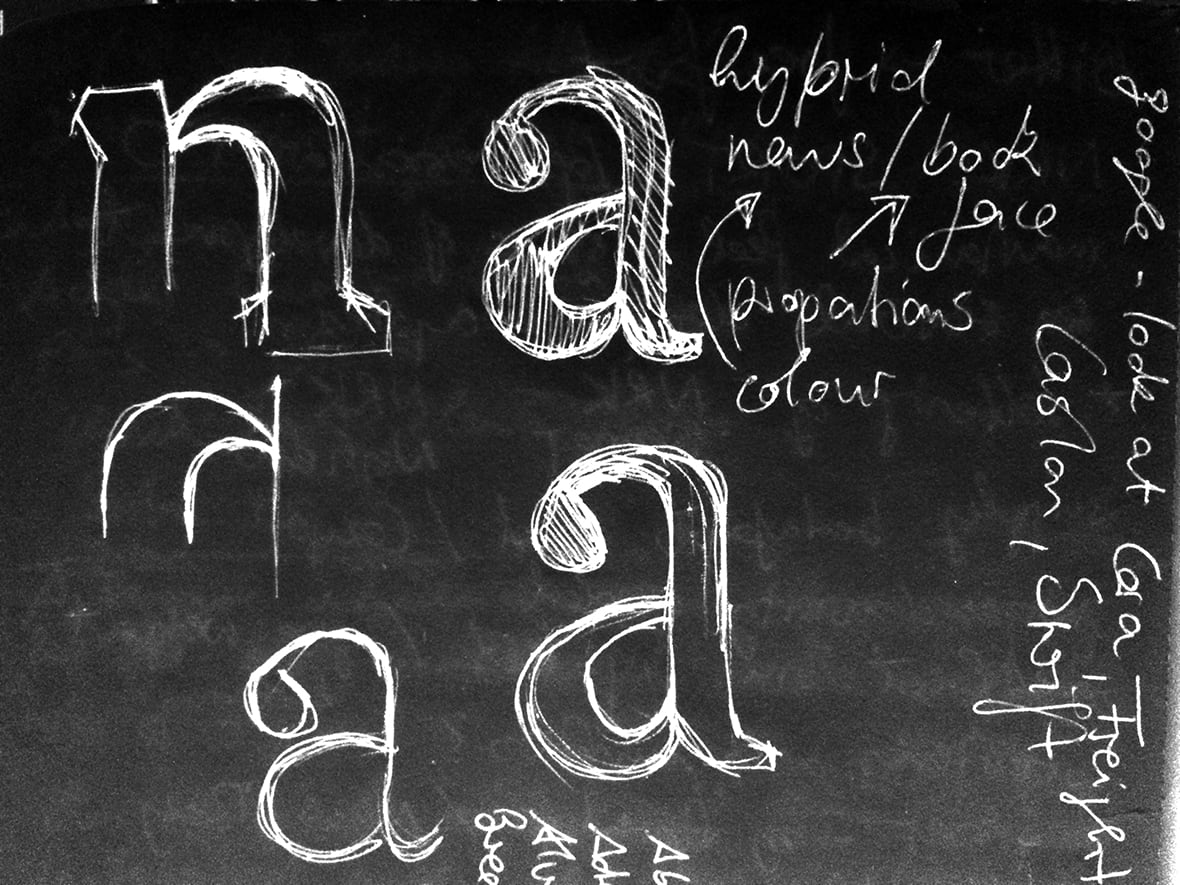 n a
hybrid
news / book
face
proportions
colour
a
a
google - look at Cara, Freight
Caslon, Skrift